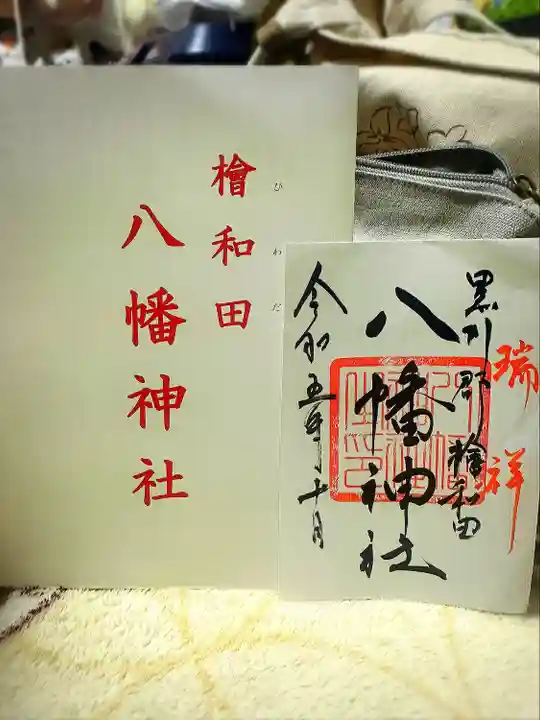 檜和田
ひわだ
八幡神社
瑞祥
黒川郡檜和田
八幡神社
令和五年十月